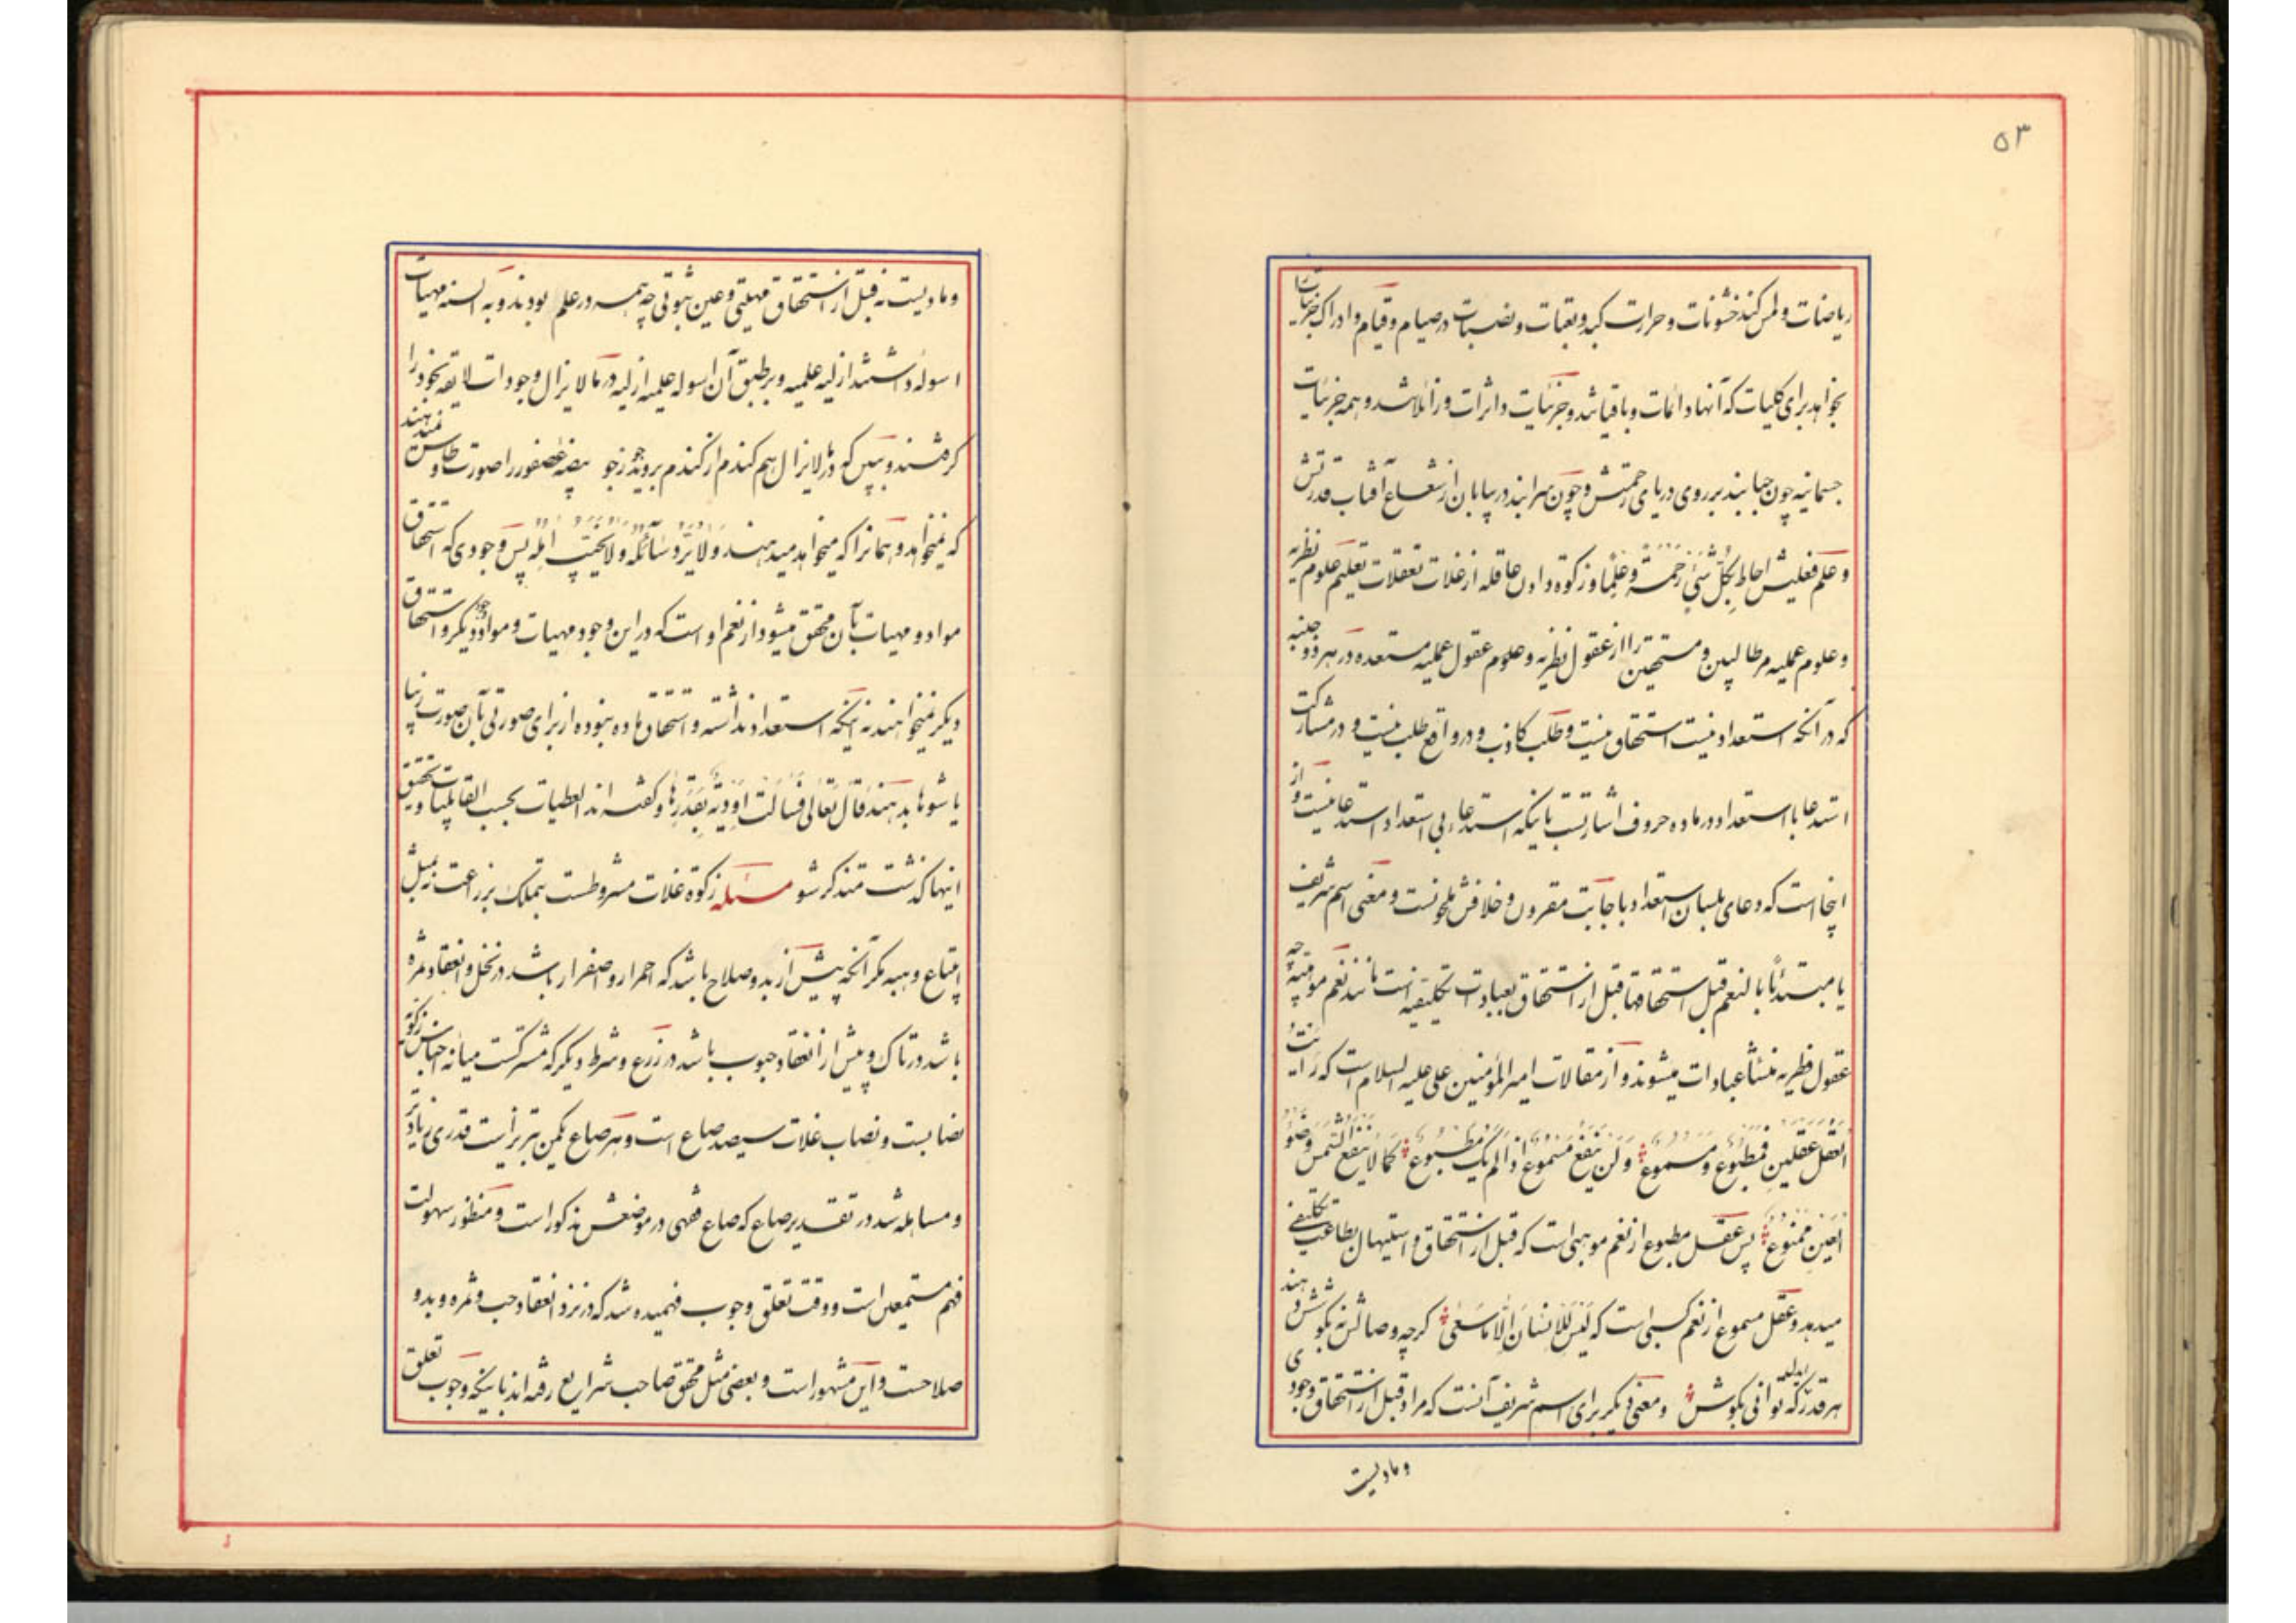 ۵۳
ریاضات و لمس کند خشونات و حرارت کبد و تعبات و نصبات در صیام و قیام و ادراک جزئیات را
بخواهد برای کلیات که آنها دائمات و باقیاتند و جزئیات داثرات و زائلاتند و همه جزئیات
جسمانیه چون حبابند بر روی دریای رحمتش و چون سرابند در بیابان از شعاع آفتاب قدرتش
و علم فعلیش احاط بکل شیء رحمة و علما و زکوة دادن عاقله از غلات تعقلات تعلیم علوم نظریه
و علوم عملیه مر طالبین و مستحقین را از عقول نظریه و علوم عقول عملیه مستعده در هر دو جنبه
که در آنکه استعداد نیست استحقاق نیست و طلب کاذب و در واقع طلب نیست و در مشارکت
استدعا با استعداد در ماده حروف اشارتیست باینکه استدعاء بی استعداد استدعا نیست و از
اینجا است که دعای بلسان استعداد باجابت مقرون و خلافش ملحونست و معنی اسم شریف
یا مبتدئا بالنعم قبل استحقاقها قبل از استحقاق بعبادات تکلیفیه است مانند نعم موهبتیه چه
عقول فطریه منشأ عبادات میشوند و از مقالات امیر المؤمنین علی علیه السلام است که رأیت
العقل عقلین فمطبوع و مسموع و لن ینفع مسموع اذا لم یک مطبوع کما لا ینفع الشمس و ضوء
العین ممنوع پس عقل مطبوع از نعم موهبتی است که قبل از استحقاق و استیهال بطاعت تکلیفی
میدهد و عقل مسموع از نعم کسبی است که لیس للانسان الا ما سعی گرچه وصالش نه بکوشش دهند
هر قدر ایدل که توانی بکوش و معنی دیگر برای اسم شریف آنست که مراد قبل از استحقاق وجودی
و مادیست
و مادیست نه قبل از استحقاق مهیتی و عین ثبوتی چه همه در علم بودند و به السنه مهیات
اسوله داشتند ازلیه علمیه و بر طبق آن اسوله علمیه ازلیه در ما لا یزال وجودات لایقه بخود را
گرفتند و بین که در لا یزال هم گندم از گندم بروید جو ز جو بیضه عصفور را صورت طاوس نمیدهند
که نمیخواهد و همانرا که میخواهد میدهند و لا یرد سائله و لا یخیب آمله پس وجودی که استحقاق
مواد و مهیات بآن محقق میشود از نعم او است که در این وجود مهیات و مواد وجود دیگر و استحقاق
دیگر نمیخواهند نه اینکه استعداد نداشته و استحقاق ماده نبوده از برای صورتی بآن صورت زیبا
یا شوها بدهند قال تعالی فسالت اودیة بقدرها و گفته اند العطیات بحسب القابلیات و تحقیق
اینها گذشت متذکر شو مسئله زکوة غلات مشروطست بتملک بزراعت نه بمثل
ابتیاع و هبه مگر آنچه پیش از بدو صلاح باشد که احمرار و اصفرار باشد در نخل و انعقاد ثمره
باشد در تاک و پیش از انعقاد حبوب باشد در زرع و شرط دیگر که مشترکست میانه اجناس زکوة
نصابست و نصاب غلات سیصد صاع است و هر صاع یکمن تبریز است قدری زیادتر
و مساهله شد در تقدیر صاع که صاع فقهی در موضعش مذکور است و منظور سهولت
فهم مستمعین است و وقت تعلق وجوب فهمیده شد که در نزد انعقاد حب و ثمره و بدو
صلاحست و این مشهور است و بعضی مثل محقق صاحب شرایع رفته اند باینکه وجوب تعلق